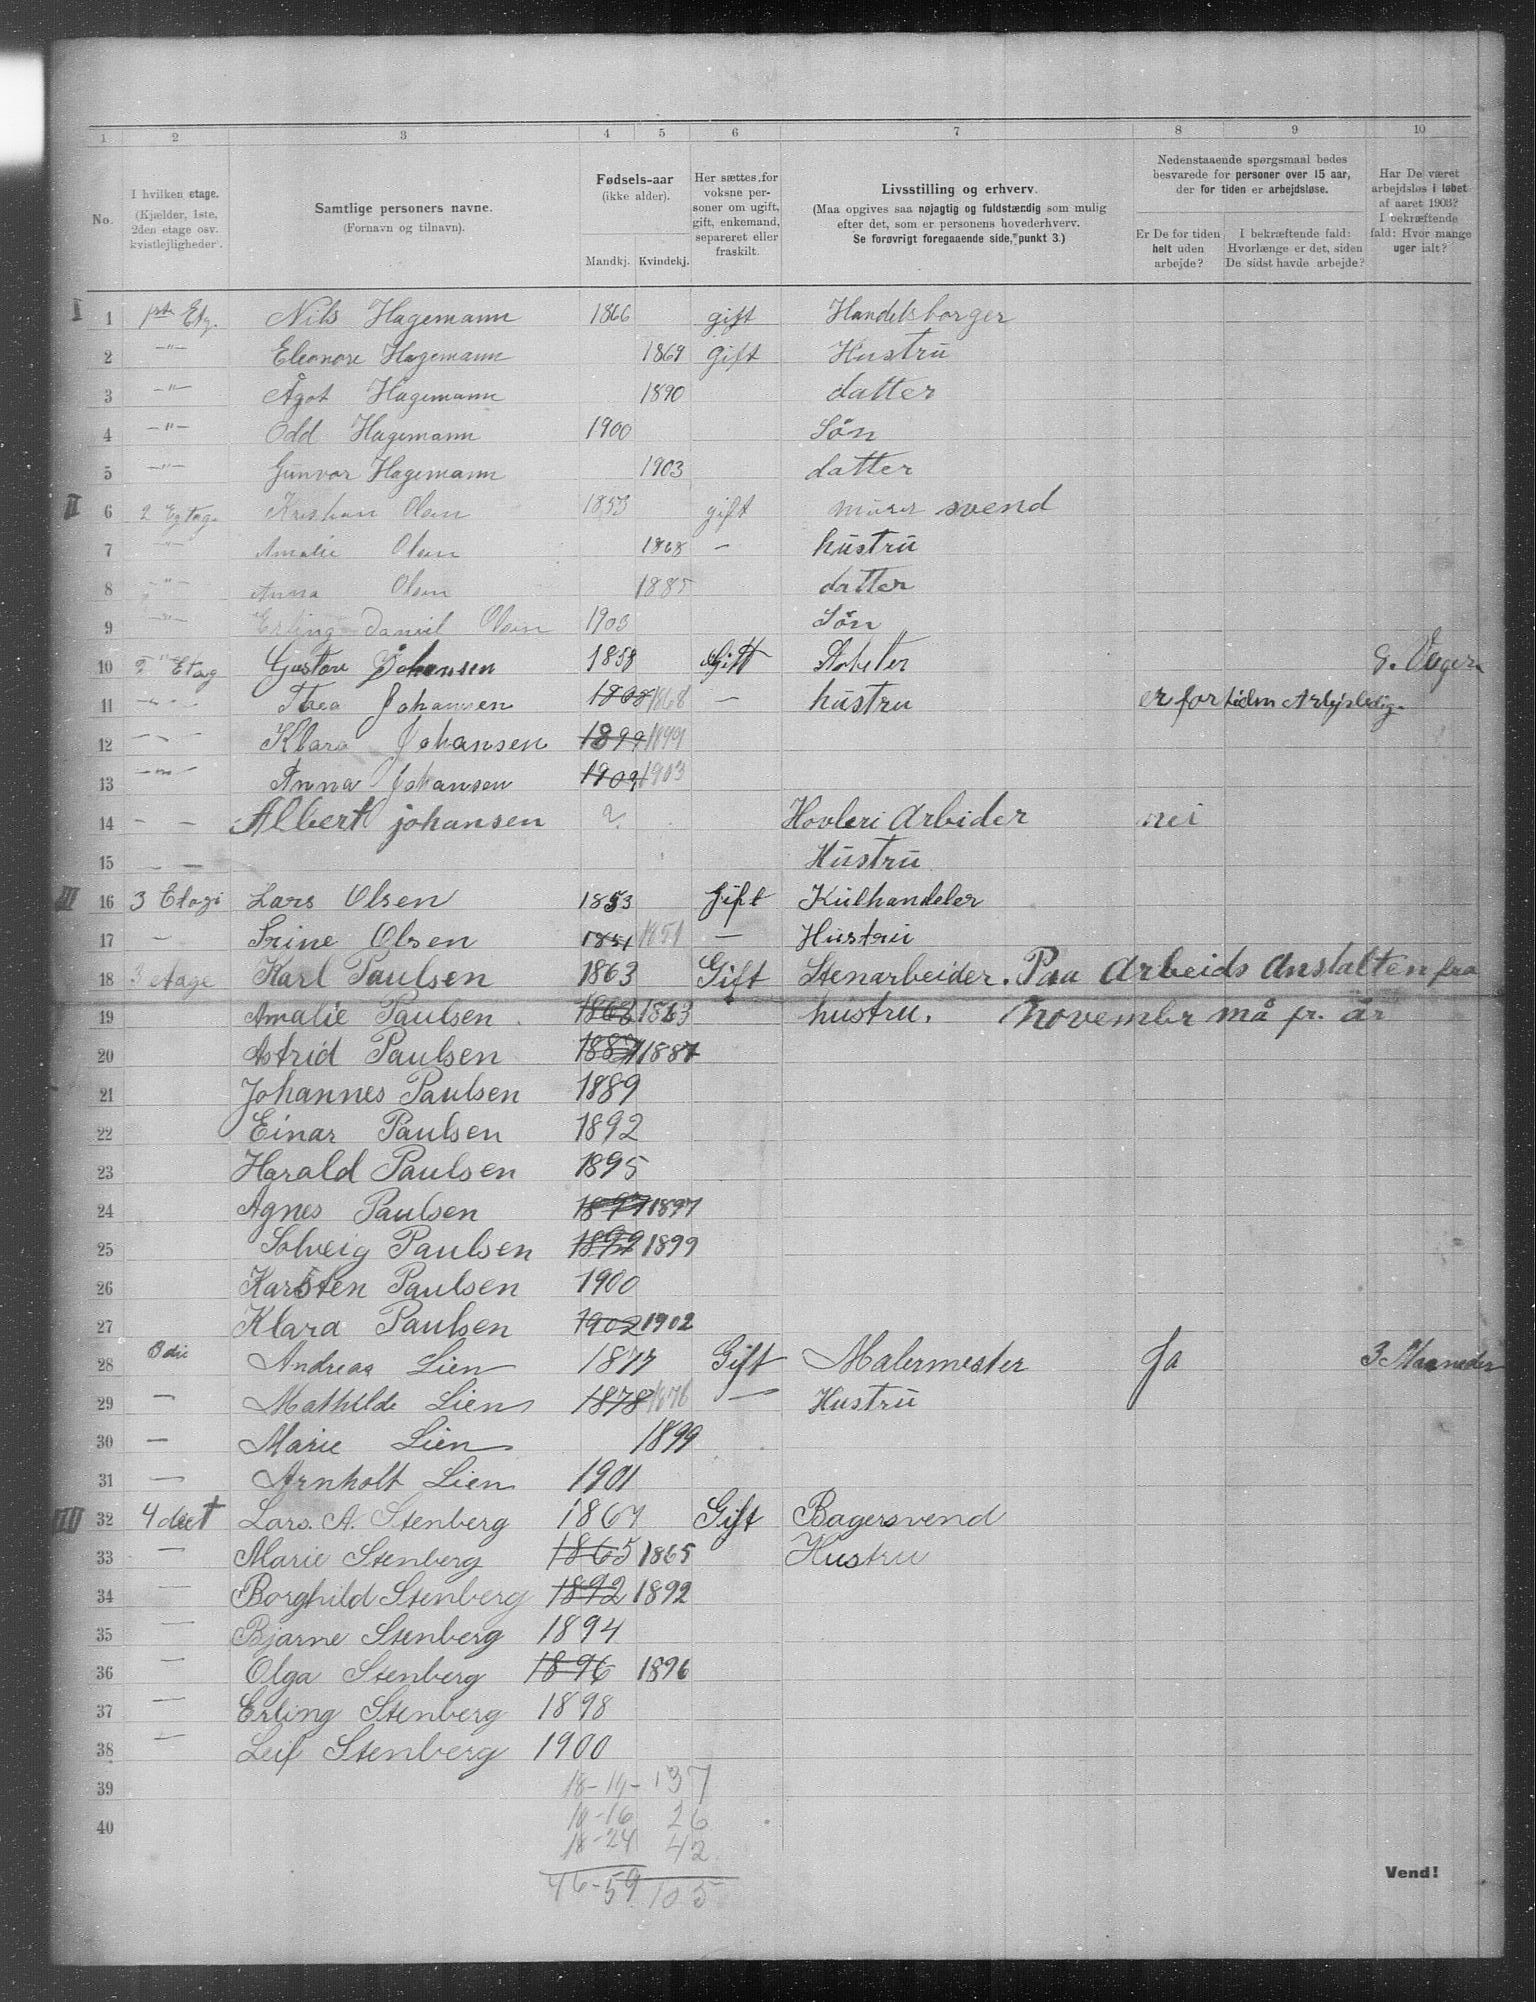 1 2 3 4 5 6 7 8 9 10
No.
I hvilken etage. (Kjælder, 1ste, 2den etage osv. kvistleiligheder).
Samtlige personers navne. (Fornavn og tilnavn).
Fødsels-aar (ikke alder). Mandkj. Kvindekj.
Her sættes for voksne personer om ugift, gift, enkemand, separeret eller fraskilt.
Livsstilling og erhverv. (Maa opgives saa nøjagtig og fuldstændig som mulig efter det, som er personens hovederhverv. Se forøvrigt foregaaende side, punkt 3.)
Nedenstaaende spørgsmaal bedes besvarede for personer over 15 aar, der for tiden er arbejdsløse.
Er De for tiden helt uden arbejde?
I bekræftende fald: Hvorlænge er det, siden De sidst havde arbejde?
Har De været arbejdsløs i løbet af aaret 1903? I bekræftende fald: Hvor mange uger ialt?
I 1 Etg. Nils Hagemann 1866 gift Handelsborger
2 -"- Eleonore Hagemann 1869 gift Hustru
3 -"- Ågot Hagemann 1890 datter
4 -"- Odd Hagemann 1900 Søn
5 -"- Gunvor Hagemann 1903 datter
II 6 2 Kristian Olsen 1853 gift murer svend
7 -"- Amalie Olsen 1868 - hustru
8 -"- Anna Olsen 1885 datter
9 -"- Erling Daniel Olsen 1903 Søn
10 2 Etag Gustav Johansen 1858 Gift
11 Thea Johansen 1868 1868 - hustru er for tiden
12 Klara Johansen 1899 1899
13 Anna Johansen 1903 1903
14 - - Albert johansen ? Hovleri Arbider nei
15 - - Hustru
III 16 3 Etage Lars Olsen 1853 Gift Kulhandeler
17 - Trine Olsen 1851 1851 - Hustru
18 3 etage Karl Paulsen 1863 Gift Stenarbeider. Paa Arbeids Anstalten fra
19 Amalie Paulsen 1863 1863 hustru. November må fr. år
20 Astrid Paulsen 1887 1887
21 Johannes Paulsen 1889
22 Einar Paulsen 1892
23 Harald Paulsen 1895
24 Agnes Paulsen 1897 1897
25 Solveig Paulsen 1899 1899
26 Karsten Paulsen 1900
27 Klara Paulsen 1902 1902
28 3 die Andreas Lien 1877 Gift Malermester Ja 3 Maaneder
29 - Mathilde Lien 1878 1878 - Hustru
30 - Marie Lien 1899
31 - Arnholt Lien 1901
IIII 32 4 Lars. A. Stenberg 1867 Gift Bagersvend
33 - Marie Stenberg 1865 1865 Hustru
34 - Borghild Stenberg 1892 1892
35 - Bjarne Stenberg 1894
36 - Olga Stenberg 1896 1896
37 - Erling Stenberg 1898
38 - Leif Stenberg 1900
39 18-19- 37
40 10-16 26
18-24 42
46-59 105
Vend!